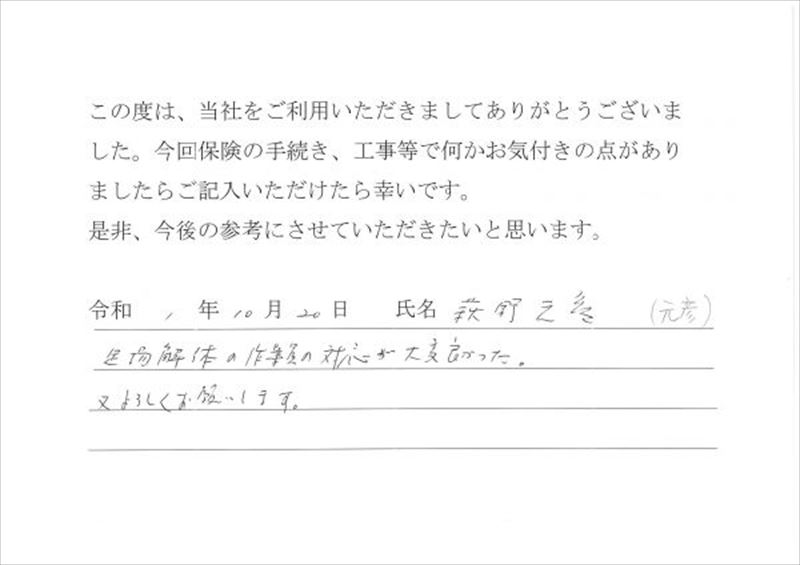 この度は、当社をご利用いただきましてありがとうございま
した。今回保険の手続き、工事等で何かお気付きの点があり
ましたらご記入いただけたら幸いです。
是非、今後の参考にさせていただきたいと思います。
令和 1 年 10 月 20 日 氏名 荻野元彦 (元彦)
足場解体の作業員の対応が大変良かった。
又よろしくお願いします。